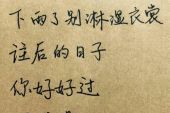 下雨了别淋湿衣裳
往后的日子
你好好过